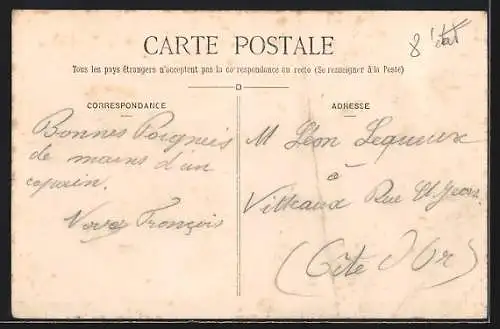 8 état
CARTE POSTALE
Tous les pays étrangers n'acceptent pas la correspondance au recto (Se renseigner à la Poste)
CORRESPONDANCE
Bonnes Poigneis
de mains d'un
copain.
François
ADRESSE
M Léon Lequeux
à
Vitteaux Rue St Jean
(Côte d'Or)